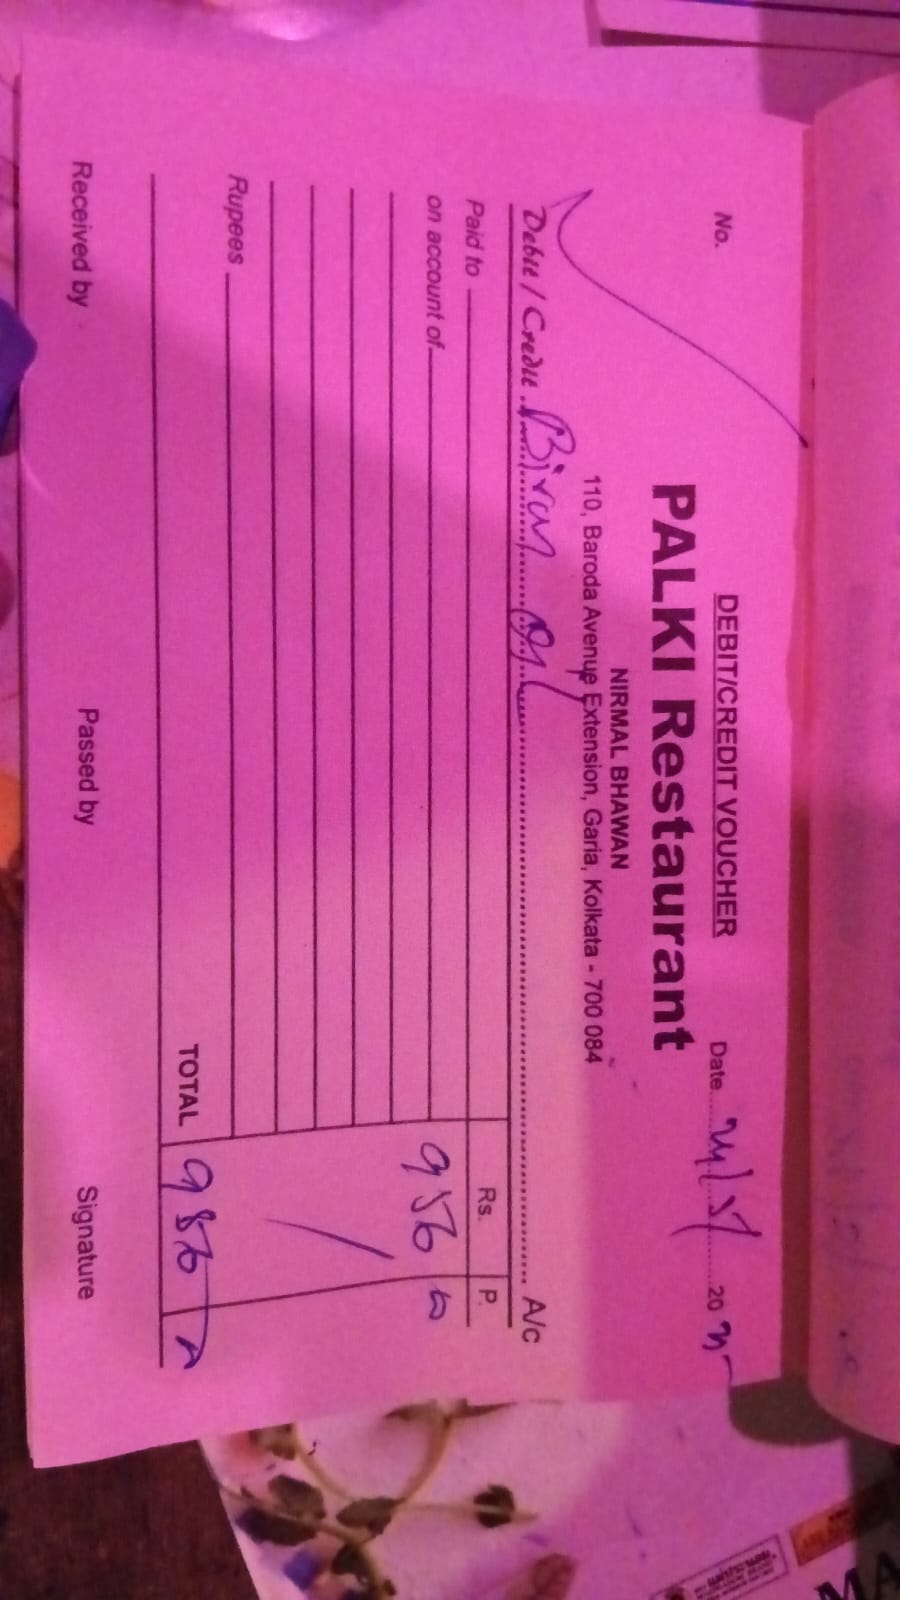 DEBIT/CREDIT VOUCHER
No.
Date 20
PALKI Restaurant
NIRMAL BHAWAN
110, Baroda Avenue Extension, Garia, Kolkata - 700 084
Debit / Credit A/c
Paid to Rs. P.
on account of 956
Rupees
TOTAL 956
Received by Passed by Signature